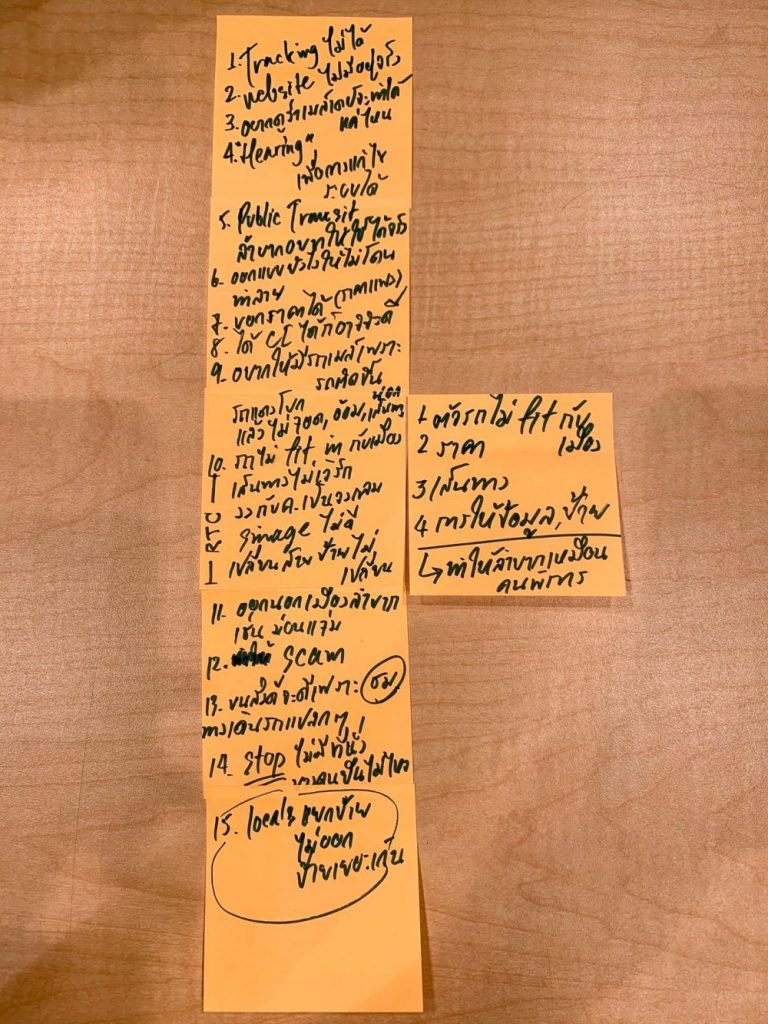 1. Tracking ไม่ได้
2. website ไม่มีอยู่จริง
3. อยากดูว่าเมล์
แค่ไหน
4. "Hearing"
เพื่อการแก้ไข
ระบบได้
5. Public Transit
ลำบากอยากให้ใช้ได้จริง
6. ออกแบบยังไงให้ไม่โดน
ทำลาย
7. บอกราคาได้ (ราคาแพง)
8. ได้ CI ได้ก็
9. อยากให้มีรถเมล์เพราะ
รถติดขึ้น
รถแดงโบก
แล้วไม่จอด, อ้อม,
10. รถไม่ fit in กับเมือง
RTC
เส้นทางไม่เวิร์ก
งงกับค. เป็นวงกลม
sinage ไม่ดี
เปลี่ยนสาย ป้ายไม่
เปลี่ยน
11. ออกนอกเมืองลำบาก
เช่น ม่อนแจ่ม
12. scam
13. ขนส่งดีจะดีเพราะ ชม
ทางเดินรถแปลกๆ!
14. stop ไม่มีที่นั่ง
บางคนยืนไม่ไหว
15. locals แยกป้าย
ไม่ออก
ป้ายเยอะเกิน
1 ตัวรถไม่ fit กับ
เมือง
2 ราคา
3 เส้นทาง
4 การให้ข้อมูล, ป้าย
↳ ทำให้ลำบากเหมือน
คนพิการ